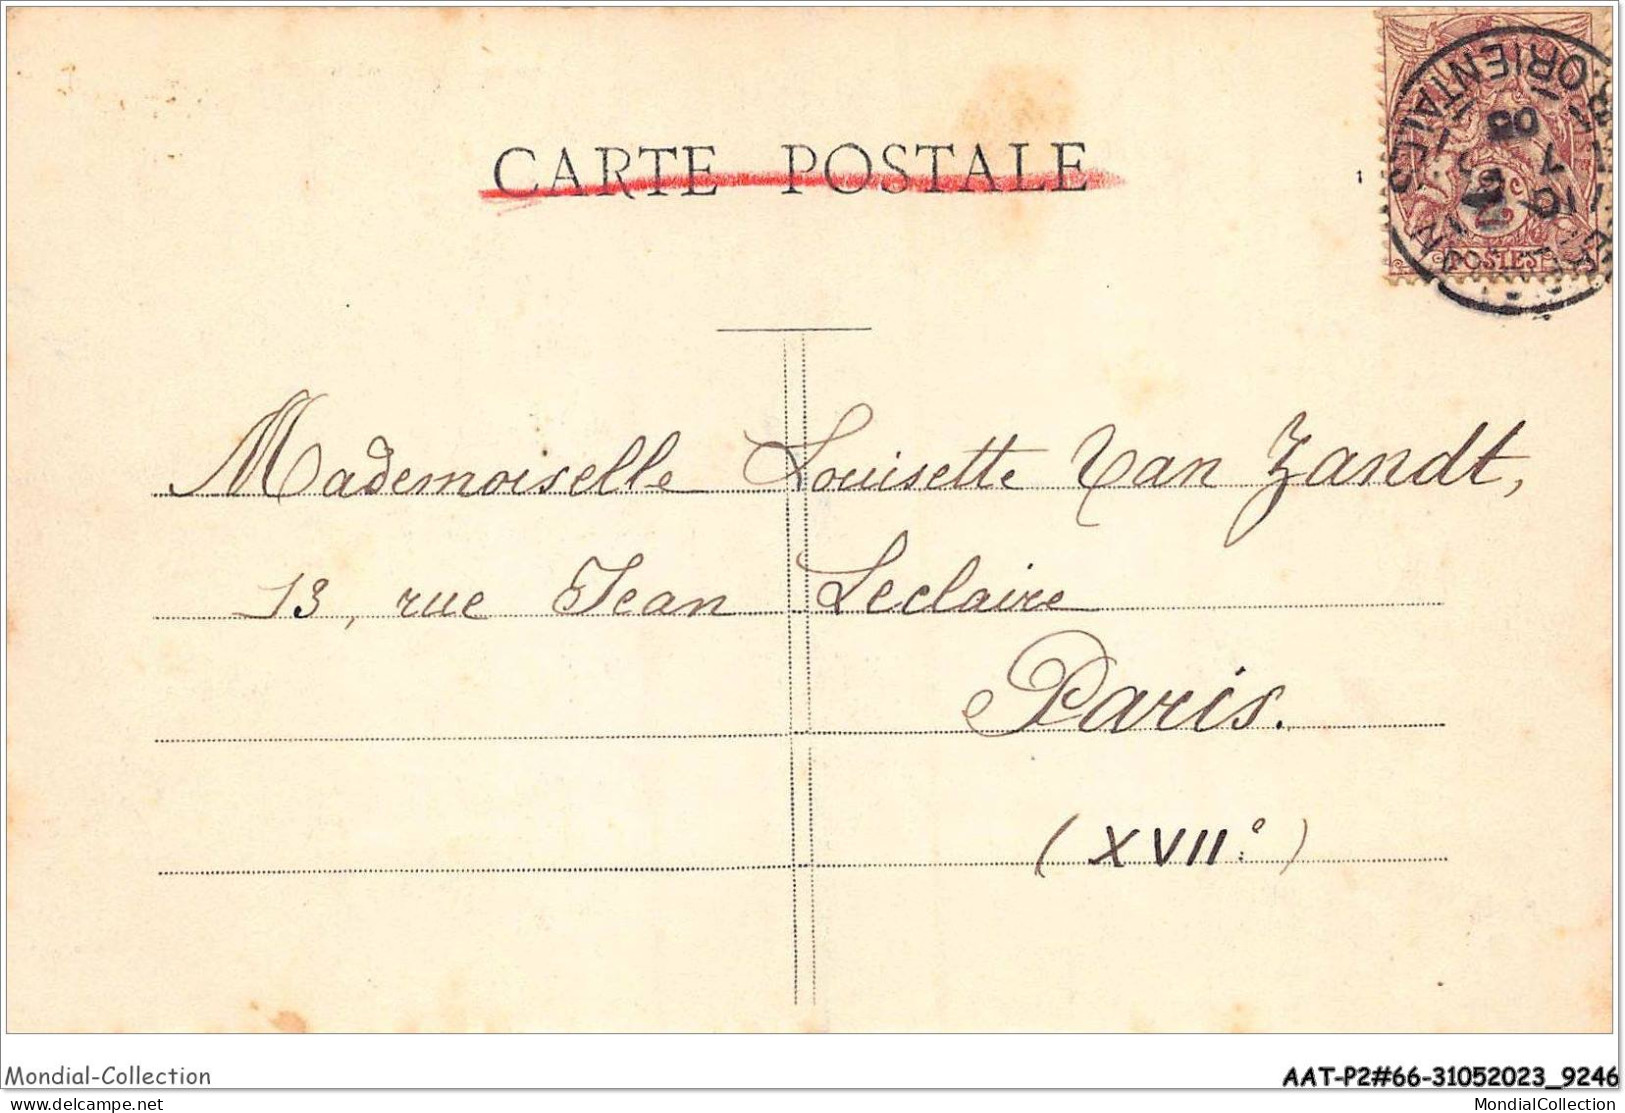 CARTE POSTALE
ORIENTALES
2c
POSTES
Mademoiselle Louisette Van Zandt,
13, rue Jean Leclaire
Paris.
(XVIIe)
Mondial-Collection
AAT-P2#66-31052023_9246
delcampe.net
MondialCollection